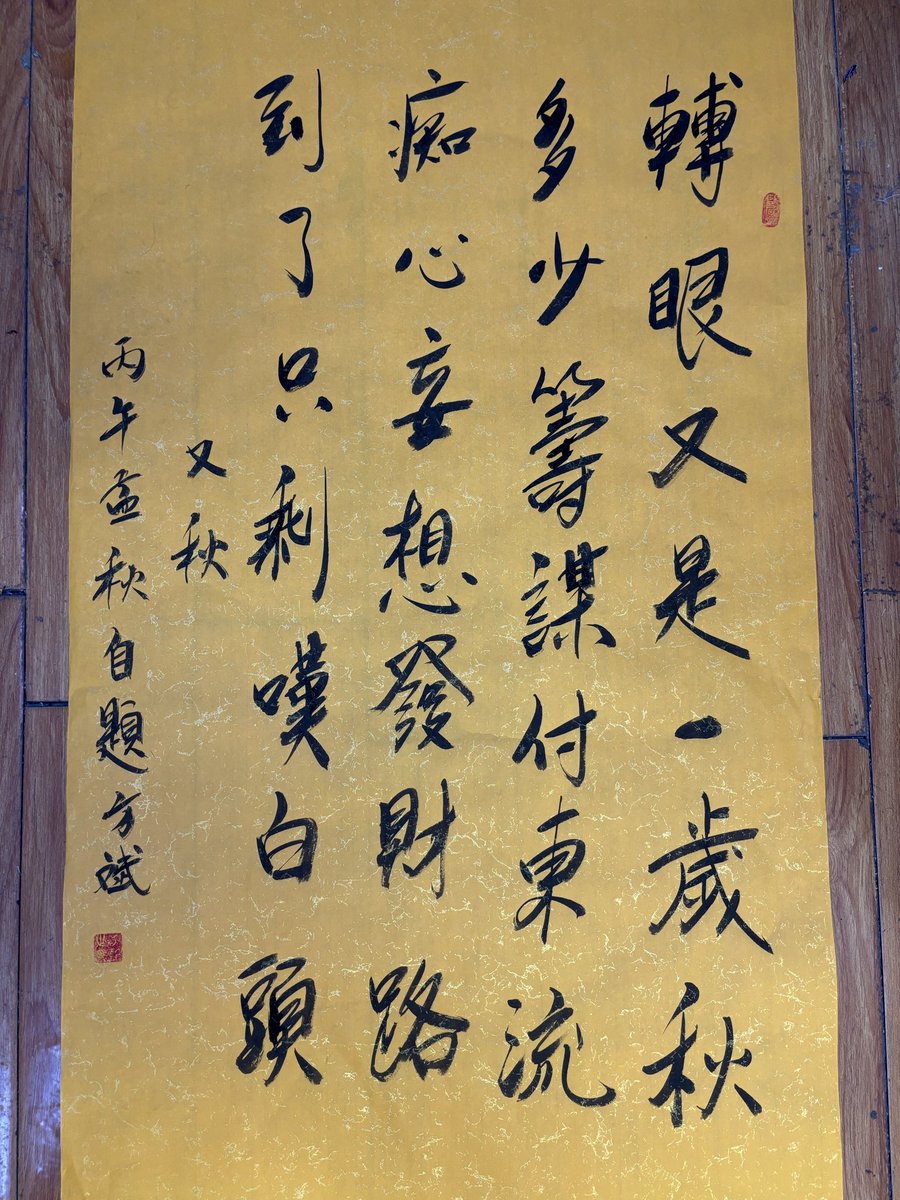 轉眼又是一歲秋
多少籌謀付東流
痴心妄想發財路
到了只剩嘆白頭
又秋
丙午孟秋自題方斌